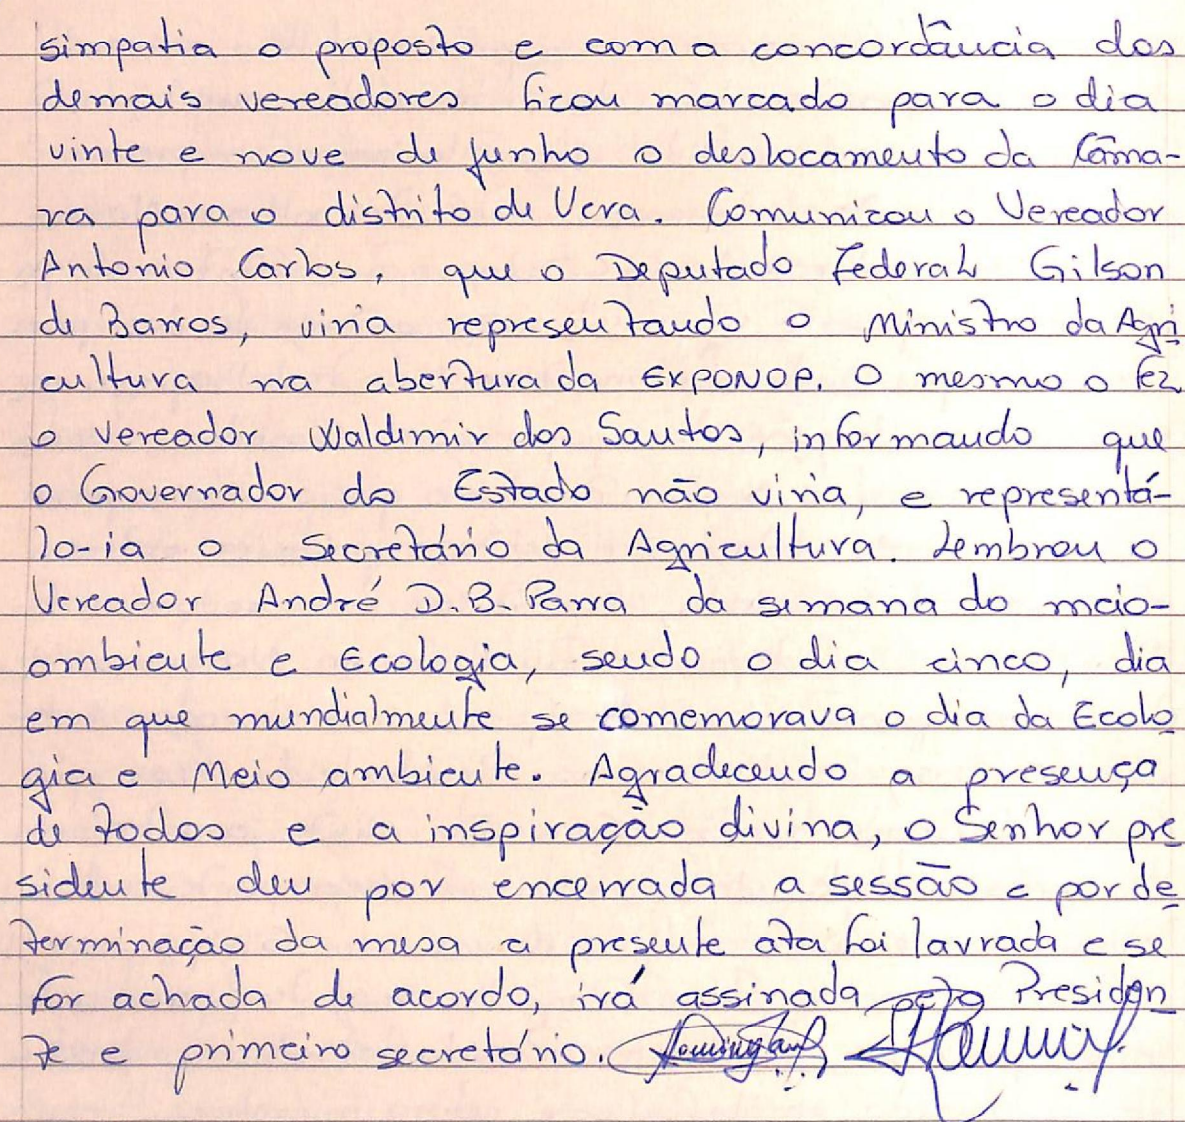 simpatia o proposto e com a concordância dos
demais vereadores ficou marcado para o dia
vinte e nove de junho o deslocamento da Câma-
ra para o distrito de Vera. Comunicou o Vereador
Antonio Carlos, que o Deputado Federal Gilson
de Barros, viria representando o Ministro da Agri
cultura na abertura da EXPONOP. O mesmo o fez
o vereador Waldimir dos Santos, informando que
o Governador do Estado não viria, e representá-
lo-ia o Secretário da Agricultura. Lembrou o
Vereador André D.B. Parra da semana do meio-
ambiente e Ecologia, sendo o dia cinco, dia
em que mundialmente se comemorava o dia da Ecolo
gia e Meio ambiente. Agradecendo a presença
de todos e a inspiração divina, o Senhor pre
sidente deu por encerrada a sessão e por de
terminação da mesa a presente ata foi lavrada e se
for achada de acordo, irá assinada pelo Presiden
te e primeiro secretário.